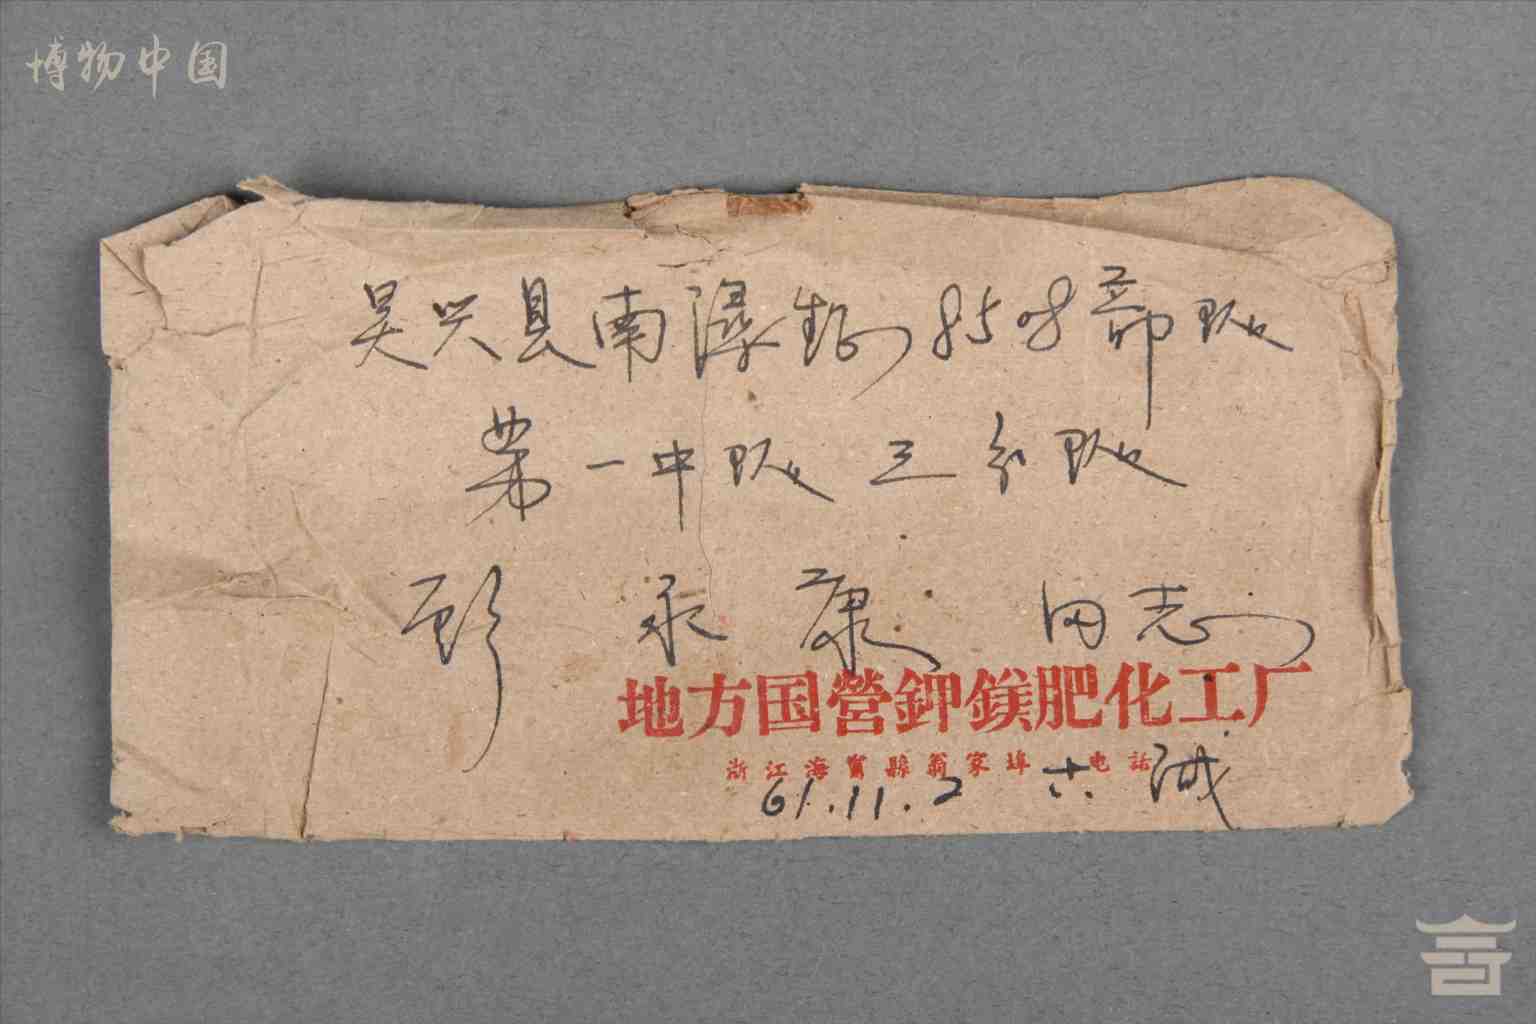 博物中国
吴兴县南浔镇8508部队
第一中队三分队
彭永康同志
地方国營鉀鎂肥化工厂
浙江海寧縣翁家埠 电話
61.11.2 六 诚